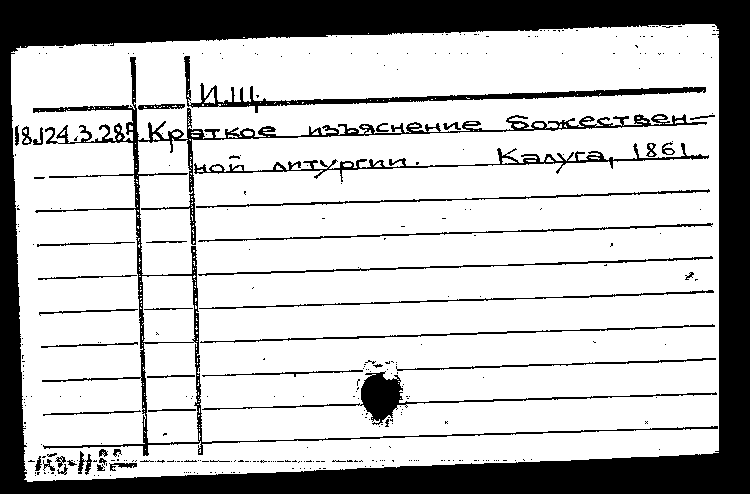 И.Щ.
18.124.3.285. Краткое изъяснение божествен-
ной литургии. Калуга, 1861.